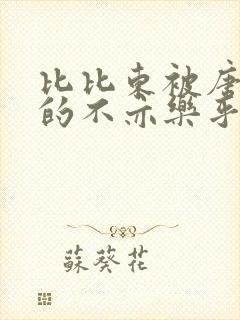 比比东被唐
的不亦樂乎
蘇葵花